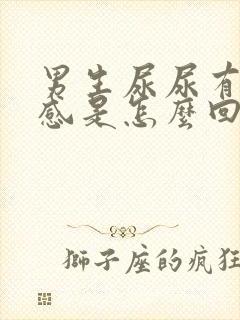 男生尿尿有
感是怎麼回
獅子座的疯狂